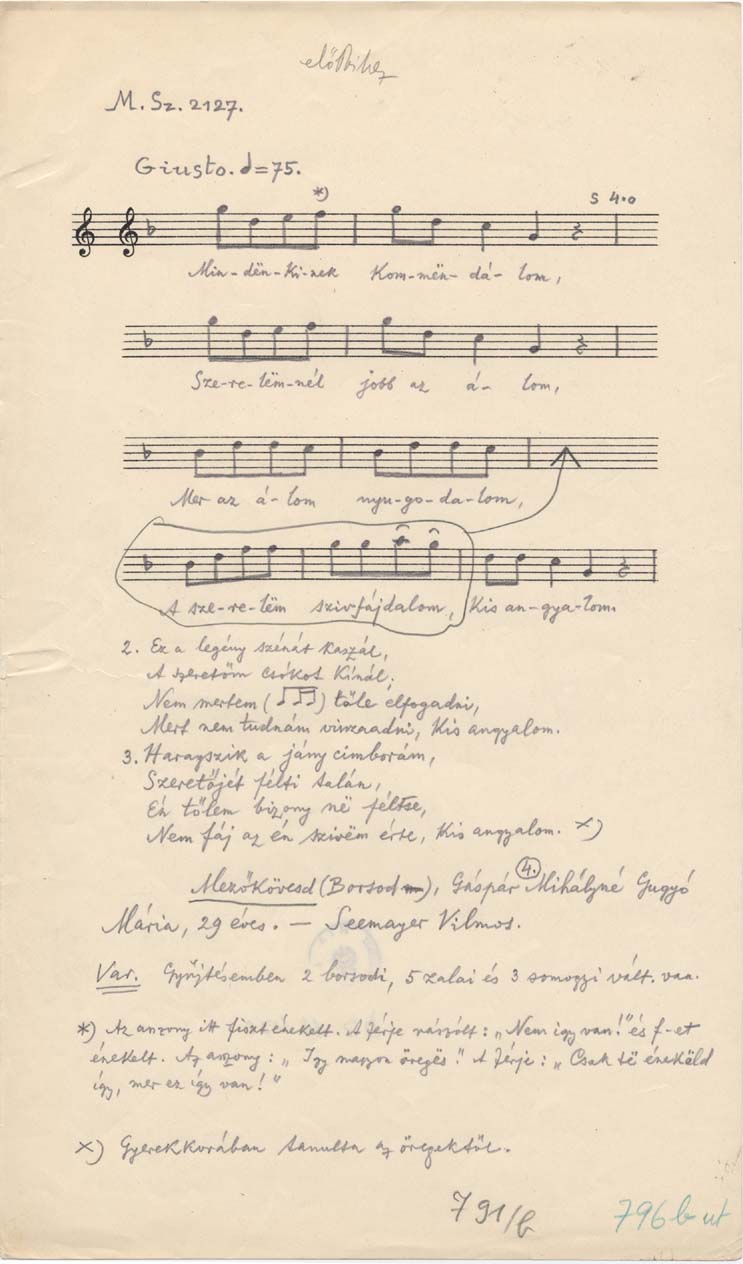 M. Sz. 2127.
Giusto. ♩=75.
*)
S 4.0
Min-dën-ki-nek Kom-mën-dá-lom,
Sze-re-lëm-nél jobb az á-lom,
Mer az á-lom nyu-go-da-lom,
A sze-re-lëm szivfájdalom, Kis an-gya-lom.
2. Ez a legény szénát kaszál,
A szeretőm csókot kínál,
Nem mertem (♩♫) tőle elfogadni,
Mert nem tudnám visszaadni, Kis angyalom.
3. Haragszik a jány cimborám,
Szeretőjét félti talán,
Én tőlem bizony në féltse,
Nem fáj az én szivëm érte, Kis angyalom. x)
4.
Mezőkövesd (Borsod m), Gáspár Mihályné Gugyó
Mária, 29 éves. — Seemayer Vilmos.
Var. Gyűjtésemben 2 borsodi, 5 zalai és 3 somogyi vált. van.
*) Az asszony itt fiszt énekelt. A férje rászólt: „Nem így van!" és f-et
énekelt. Az asszony: „Igy nagyon öregës." A férje: „Csak të énekëld
így, mer ez így van!"
x) Gyerekkorában tanulta az öregektől.
791/b
796 b ut